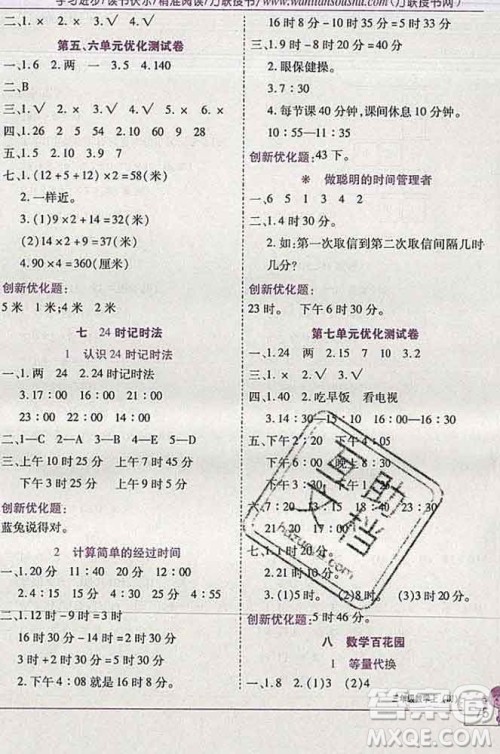 学习进步/读书快乐/精准阅读/万联搜书/www.wanliansoushu.com(万联搜书网)
第五、六单元优化测试卷
一、1.6 2.两 一 3.5 4.140
二、B
三、1.√ 2.√ 3.× 4.√
四、1.26 2.14 3.24 4.18
五、1.10 2.2 3.9 7
七、1.(12+5+12)×2=58(米)
2.一样近。
3.(1)9×2+14=32(米)
(2)14×2=28(米)
4.90×4=360(厘米)
创新优化题:
5米 1米;4米 2米
七 24时记时法
1 认识24时记时法
一、1.两 24 2.√
3.17:00 18:00 19:00 21:00
23:00 22:00
二、1—C 2—A 3—D 4—B
三、上午10时25分 上午7时45分
下午1时30分 下午3时
创新优化题:
蓝兔说得对。
2 计算简单的经过时间
一、1.3 2.35 3.2 4.2
二、4:15 15:20 20:15
三、1.12时-9时=3时
16时30分-12时=4时30分
3时+2时=5时
2.下午2:00就是14时
14时-8时=6时
16时8分-15时25分=43分
2.眼保健操。
3.7:00
4.每节课40分钟,课间休息10分钟。
10:55—11:35
创新优化题:43下。
※ 做聪明的时间管理者
一、6 5 1 3 4 2
二、1.4时30分。
2.如:第一次取信到第二次取信间隔几
时几分?
创新优化题:
23时。 下午6时30分。
第七单元优化测试卷
一、1.24 两 2.15 7 10
二、1.× 2.× 3.√ 4.√
四、1.40 2.吃早饭 看电视
3.14:30 15:10 16:00—16:40
五、下午2:20 下午4:05
下午6:00 晚上8:00
下午3:30
21:20 17:00
七、1.1时50分。
2.21时10分。
3.(1)5时。 (2)时。 (3)9时20分。
创新优化题:5时46分。
八 数学百花园
1 等量代换
一、1.(1)2 (2)3 (3)4